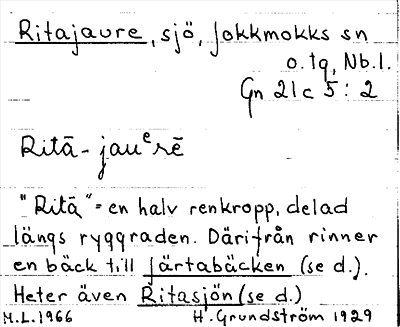 Ritajaure, sjö, Jokkmokks sn
o. tg, Nb.l.
Gn 21 c 5 : 2
Ritā - jauᵉrē
"Ritā" = en halv renkropp, delad
längs ryggraden. Därifrån rinner
en bäck till Järtabäcken (se d.).
Heter även Ritasjön (se d.)
M.L. 1966 H. Grundström 1929